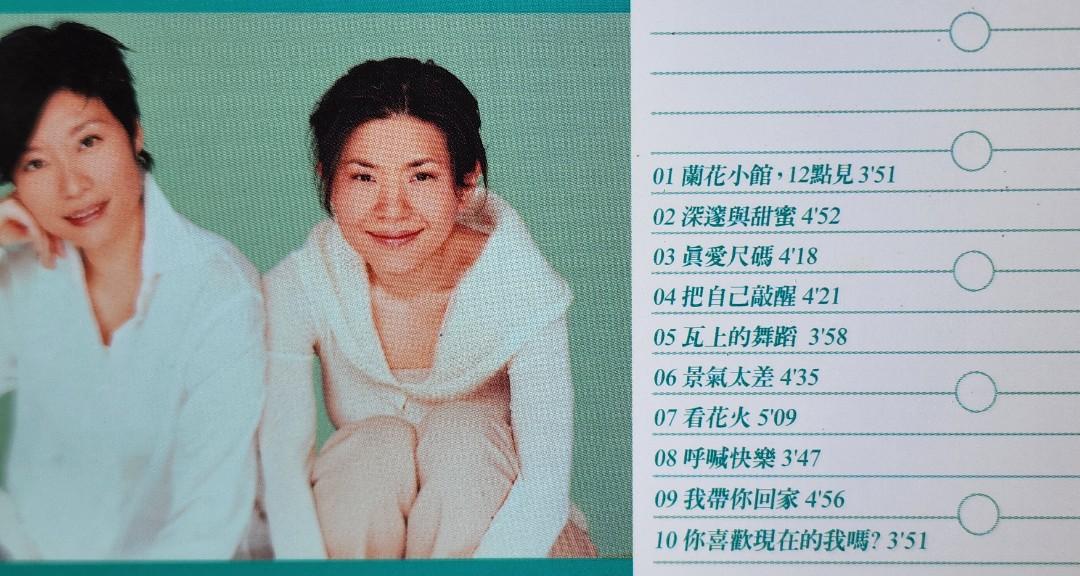 01 蘭花小館，12點見 3'51
02 深邃與甜蜜 4'52
03 眞愛尺碼 4'18
04 把自己敲醒 4'21
05 瓦上的舞蹈 3'58
06 景氣太差 4'35
07 看花火 5'09
08 呼喊快樂 3'47
09 我帶你回家 4'56
10 你喜歡現在的我嗎? 3'51